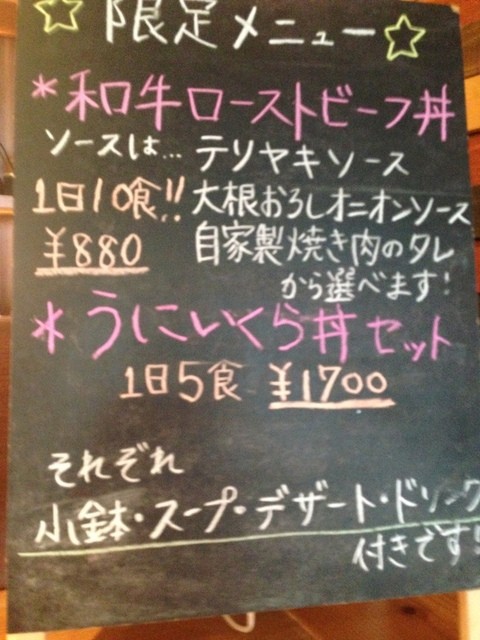 ☆限定メニュー☆
*和牛ローストビーフ丼
ソースは… テリヤキソース
1日10食!! 大根おろしオニオンソース
¥880 自家製焼き肉のタレ
から選べます!
*うにいくら丼セット
1日5食 ¥1700
それぞれ
小鉢・スープ・デザート・ドリンク
付きです!